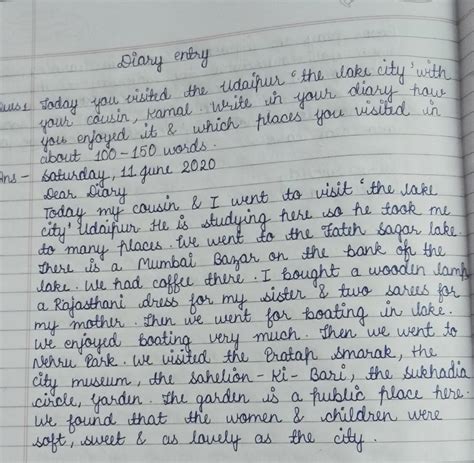 Diary entry
Ques1 Today you visited the Udaipur 'the lake city' with
your cousin, Kamal. Write in your diary how
you enjoyed it & which places you visited in
about 100-150 words.
Ans - Saturday, 11 June 2020
Dear Diary
Today my cousin & I went to visit 'the lake
city' Udaipur. He is studying here so he took me
to many places. We went to the Fateh Sagar lake.
There is a Mumbai Bazar on the bank of the
lake. We had coffee there. I bought a wooden lamp,
a Rajasthani dress for my sister & two sarees for
my mother. Then we went for boating in lake.
We enjoyed boating very much. Then we went to
Nehru Park. We visited the Pratap Smarak, the
city museum, the Sahelion-Ki-Bari, the Sukhadia
circle, garden. The garden is a public place here.
We found that the women & children were
soft, sweet & as lovely as the city.